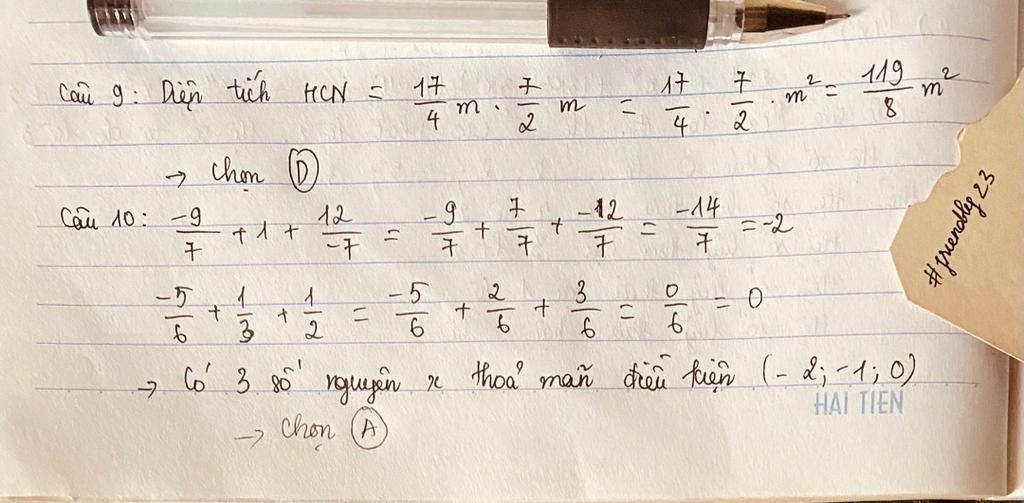 Câu 9: Diện tích HCN = 17/4 m . 7/2 m = 17/4 . 7/2 . m² = 119/8 m²
→ chọn D
Câu 10: -9/7 + 1 + 12/-7 = -9/7 + 7/7 + -12/7 = -14/7 = -2
-5/6 + 1/3 + 1/2 = -5/6 + 2/6 + 3/6 = 0/6 = 0
→ Có 3 số nguyên x thoả mãn điều kiện (-2; -1; 0)
HẢI TIẾN
→ chọn A
#friendhg23